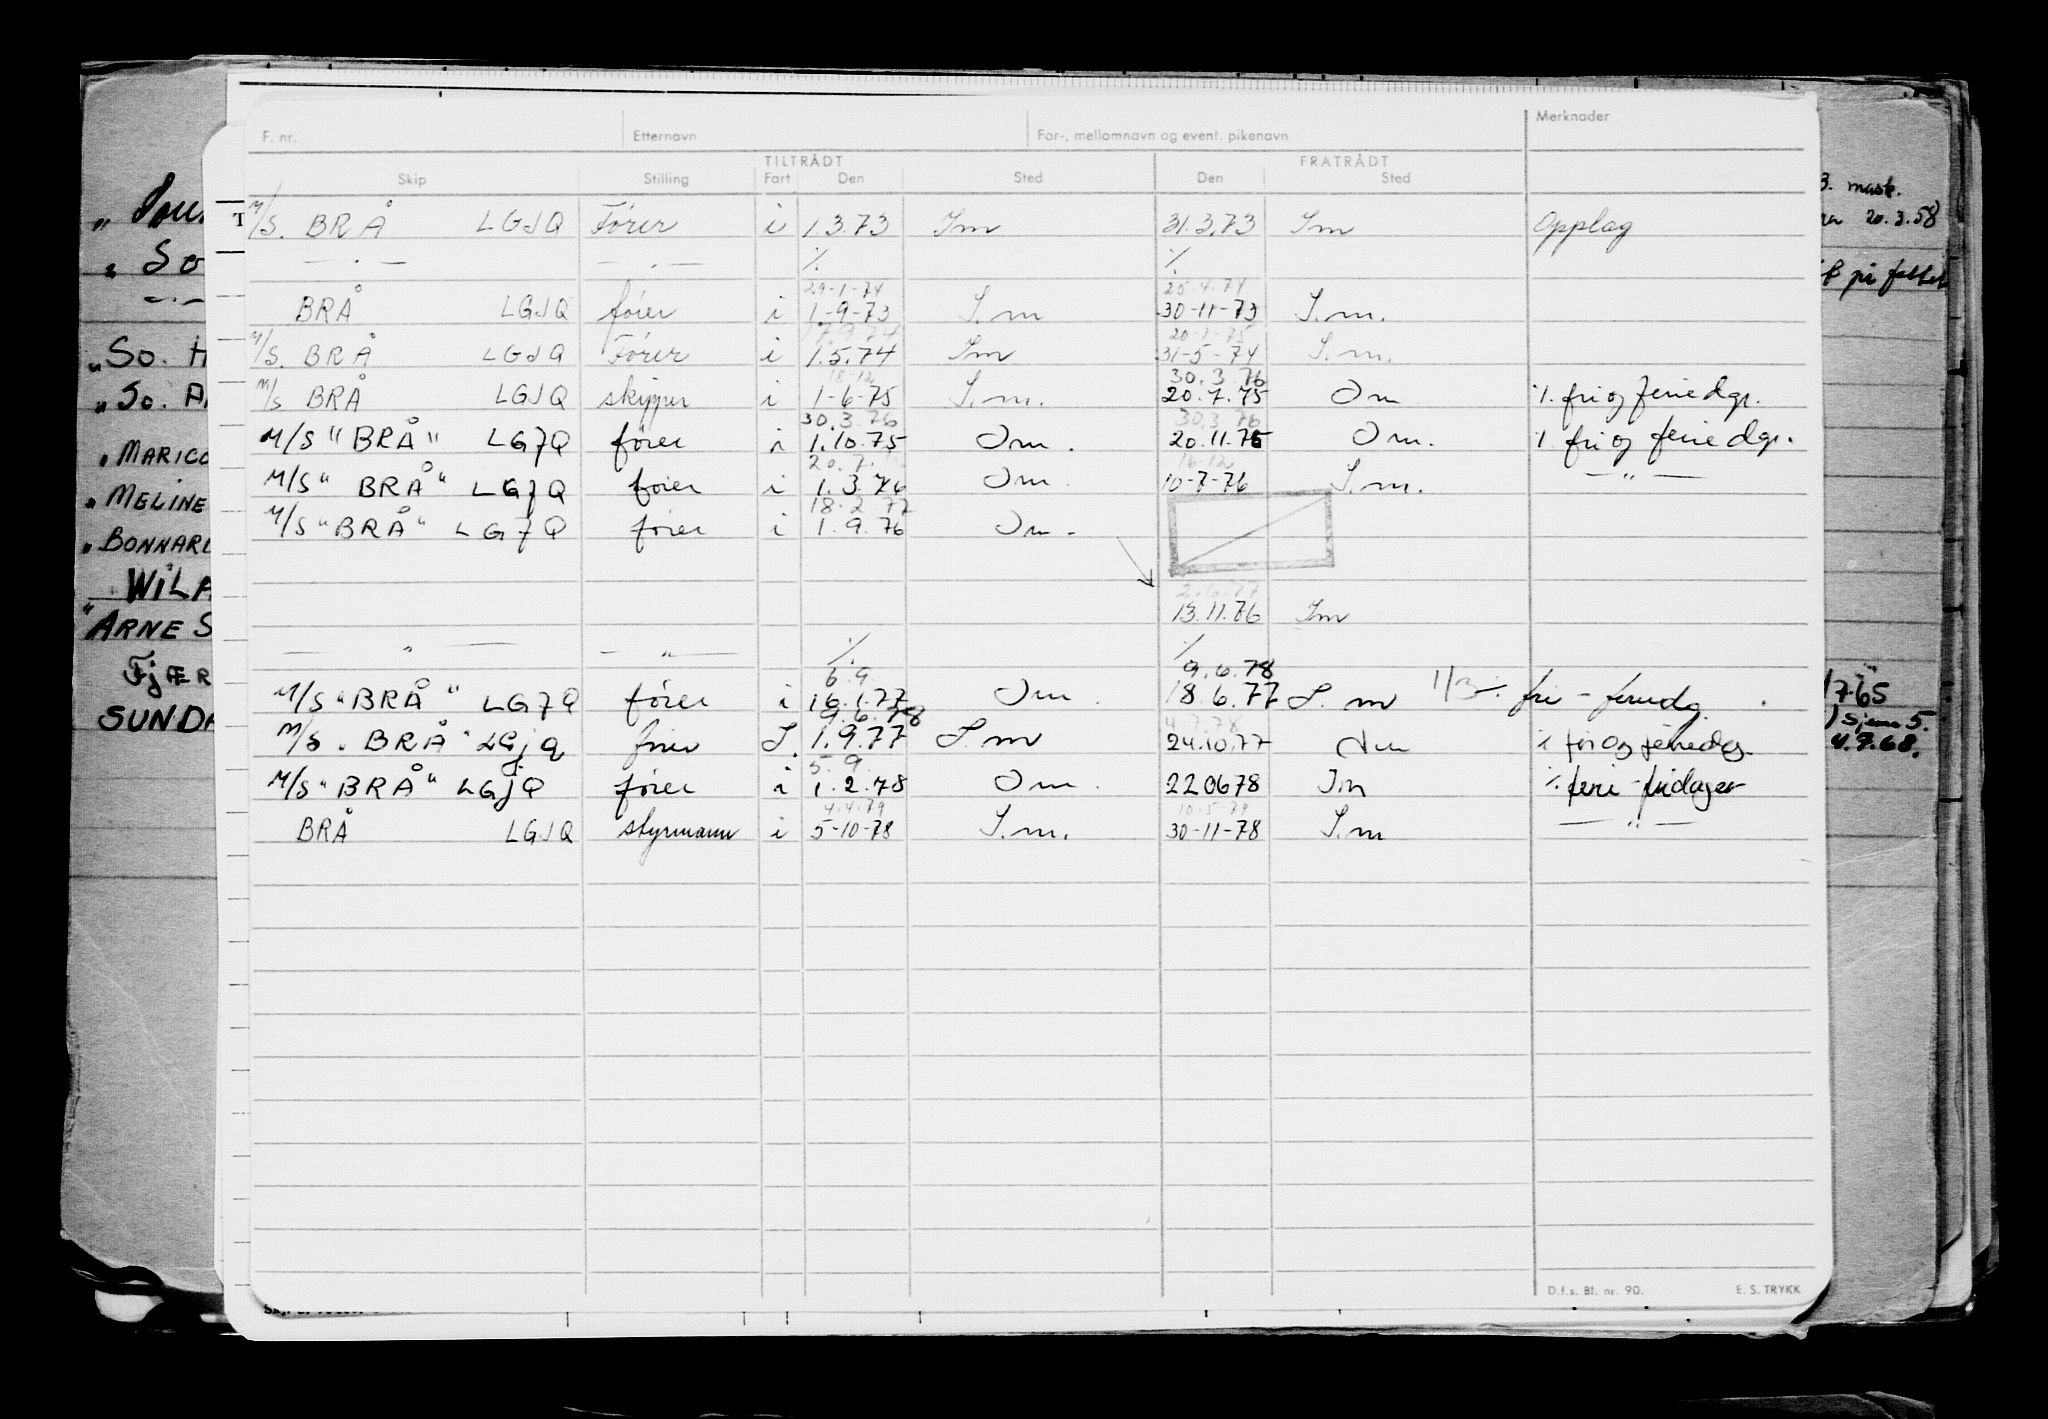 F. nr. Etternavn For-, mellomnavn og event. pikenavn Merknader
TILTRÅDT FRATRÅDT
Skip Stilling Fart Den Sted Den Sted
M/S. BRÅ LGJQ Fører i 1.3.73 Sm 31.3.73 Sm Opplag
— . — — . — ./. ./.
29-1-74 25-4-74
BRÅ LGJQ fører i 1-9-73 S.m 30-11-73 S.m.
17.9.74 20-1-75
M/S. BRÅ LGJQ Fører i 1.5.74 Sm 31-5-74 S.m.
18-12 30.3.76
M/S BRÅ LGJQ skipper i 1-6-75 S.m. 20.7.75 Sm ./. fri og feriedgr.
30.3.76 30.3.76
M/S "BRÅ" LGJQ fører i 1.10.75 Sm. 20.11.75 Sm. ./. fri og feriedgr.
20.7. 16.12
M/S "BRÅ" LGJQ fører i 1.3.76 Sm. 10-7-76 S.m. — " —
18.2.77
M/S "BRÅ" LGJQ fører i 1.9.76 Sm.
2.6.77
13.11.76 Sm
— " — — " — ./. ./.
6.9. 9.6.78
M/S "BRÅ" LGJQ fører i 16.1.77 Sm. 18.6.77 S.m ./. fri - feriedg.
9.6.78 4.7.78
M/S. BRÅ" LGJQ fører S. 1.9.77 S.m 24.10.77 Sm ./. fri og feriedgr.
5.9.
M/S "BRÅ" LGJQ fører i 1.2.78 Sm. 220678 Sm ./. ferie-fridager
4.4.79 10.5.79
BRÅ LGJQ styrmann i 5-10-78 S.m. 30-11-78 S.m — " —
D.f.s. Bl. nr. 90. E. S. TRYKK
" So
" So. H
" So. A
" MELINE
" BONNARD
" ARNE S
FJÆR
SUNDA
B. mask.
20.3.58
på fattet
1765
sjøm 5.
4.9.68.